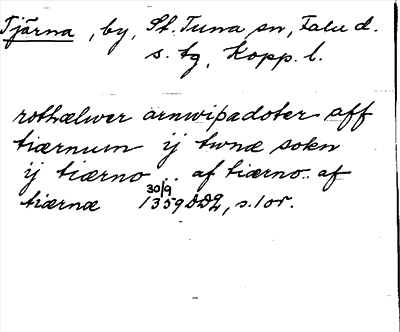 Tjärna, by, St. Tuna sn, Falu d.
s. tg, Kopp. l.
rothælwer arnwipadoter aff
tiærnum ij twnæ sokn
ij tiærno .. af tiærno .. af
tiærnæ 30/9 1359 DD2, s. 1 or.